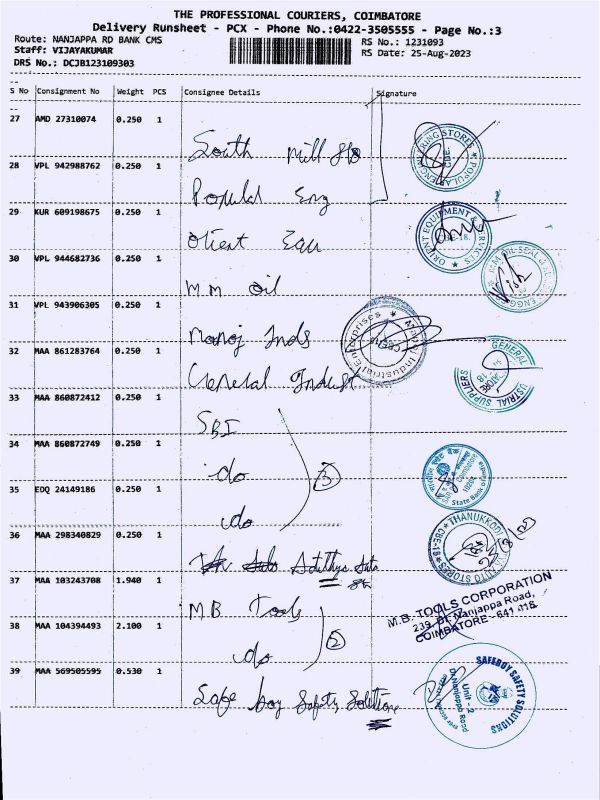 THE PROFESSIONAL COURIERS, COIMBATORE
Delivery Runsheet - PCX - Phone No.:0422-3505555 - Page No.:3
Route: NANJAPPA RD BANK CMS
RS No.: 1231093
Staff: VIJAYAKUMAR
RS Date: 25-Aug-2023
DRS No.: DCJB123109303
S No Consignment No Weight PCS Consignee Details Signature
27 AMD 27310074 0.250 1
South Mill
POPULAR ENGINEERING STORES CBE
28 VPL 942988762 0.250 1
Populal Eng
29 KUR 609198675 0.250 1
Olient Equ
ORIENT EQUIPMENT & SERVICES
30 VPL 944682736 0.250 1
M M Oil
M.M. OIL SEAL
31 VPL 943906305 0.250 1
Manoj Inds
Manoj Industrial Enterprises CBE
32 MAA 861283764 0.250 1
General Indust
GENERAL INDUSTRIAL SUPPLIERS
33 MAA 860872412 0.250 1
SBI
34 MAA 860872749 0.250 1
do 3
State Bank of India
35 EDQ 24149186 0.250 1
do
36 MAA 298340829 0.250 1
Adithya Auto
THANUKKODI AUTO STORES CBE-18
25/8/23
37 MAA 103243708 1.940 1
M.B Tools
M.B. TOOLS CORPORATION
239, Dr. Nanjappa Road,
COIMBATORE - 641 018.
38 MAA 104394493 2.100 1
do 2
39 MAA 569505595 0.530 1
Safe boy Safety Solutions
SAFEBOY SAFETY SOLUTIONS
Unit - 2
Dr.Nanjappa Road